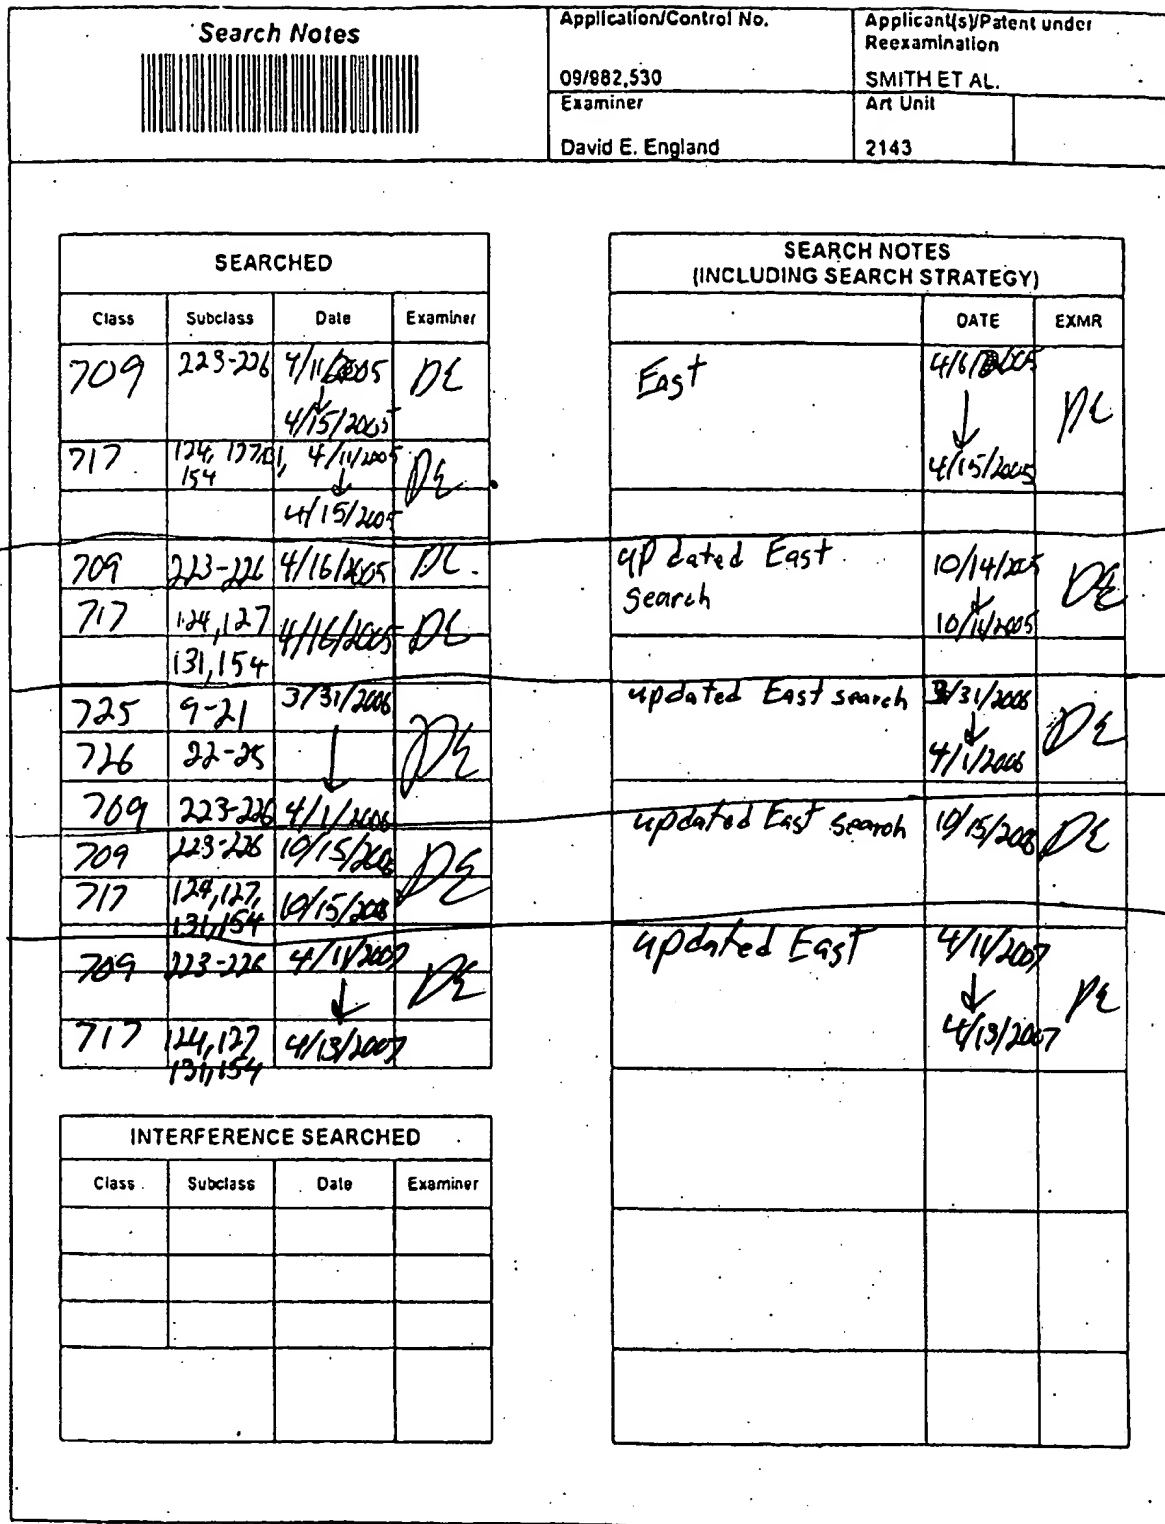 Search Notes
Application/Control No.
09/882,530
Applicant(s)/Patent under
Reexamination
SMITH ET AL.
Examiner
David E. England
Art Unit
2143
SEARCHED
Class Subclass Date Examiner
709 223-226 4/11/2005 DE
4/15/2005
717 124, 127, 131, 4/11/2005 DE
154
4/15/2005
709 223-226 4/16/2005 DE
717 124,127 4/16/2005 DE
131,154
725 9-21 3/31/2006 DE
726 22-25
709 223-226 4/1/2006
709 223-226 10/15/2006 DE
717 124,127, 10/15/2006
131,154
709 223-226 4/11/2007 DE
717 124,127 4/13/2007
131,154
INTERFERENCE SEARCHED
Class Subclass Date Examiner
SEARCH NOTES
(INCLUDING SEARCH STRATEGY)
DATE EXMR
East 4/6/2005 DE
4/15/2005
updated East 10/14/2005 DE
search
updated East search 3/31/2006 DE
4/1/2006
updated East search 10/15/2006 DE
updated East 4/11/2007 DE
4/13/2007